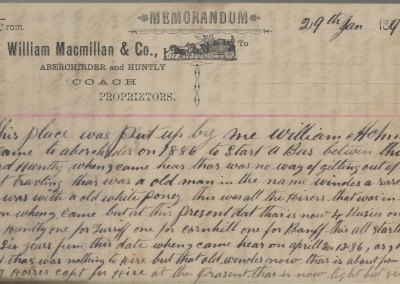 MEMORANDUM
From
29th Jan 189
William Macmillan & Co.,
To
ABERCHIRDER and HUNTLY
COACH
PROPRIETORS.
his place was put up by me William
came to aberchirder on 1886 to Start a Bus betwin this
d Huntly wheng came hear thar was no way of gitting out of
t travling thar was a old man in the name
was with a old white Poney this was all the Hirers that was in
n wheng came but at this present dat thar is now 4 Busies on
Huntly one for Turiff one for cornhill one for Banff this all Starte
Six years fim this date wheng came hear on april 20 1886, as
t thar was nothing to Hire but that old now thar is about
Horses capt for Hire at the Present thar is now Eight but